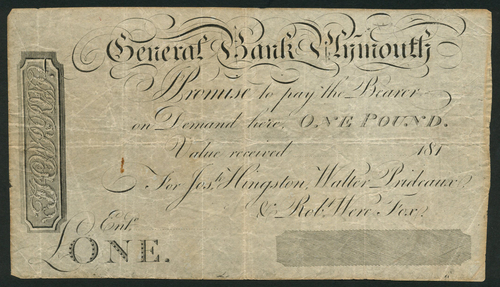 General Bank Plymouth
I Promise to pay the Bearer
on Demand here, ONE POUND.
Value received 181
For Josh. Hingston, Walter Prideaux
& Robt. Were Fox.
Entd.
£ONE.